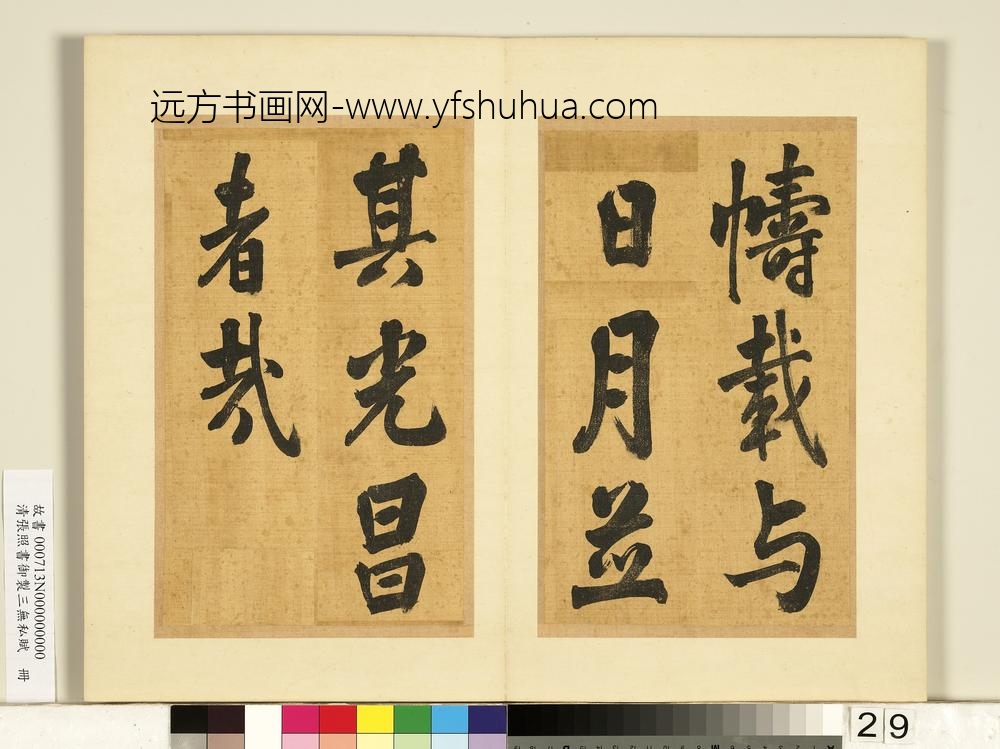 远方书画网-www.yfshuhua.com
幬載与
日月並
其光昌
者哉
故書 000713N000000000
清張照書御製三無私賦 冊
29